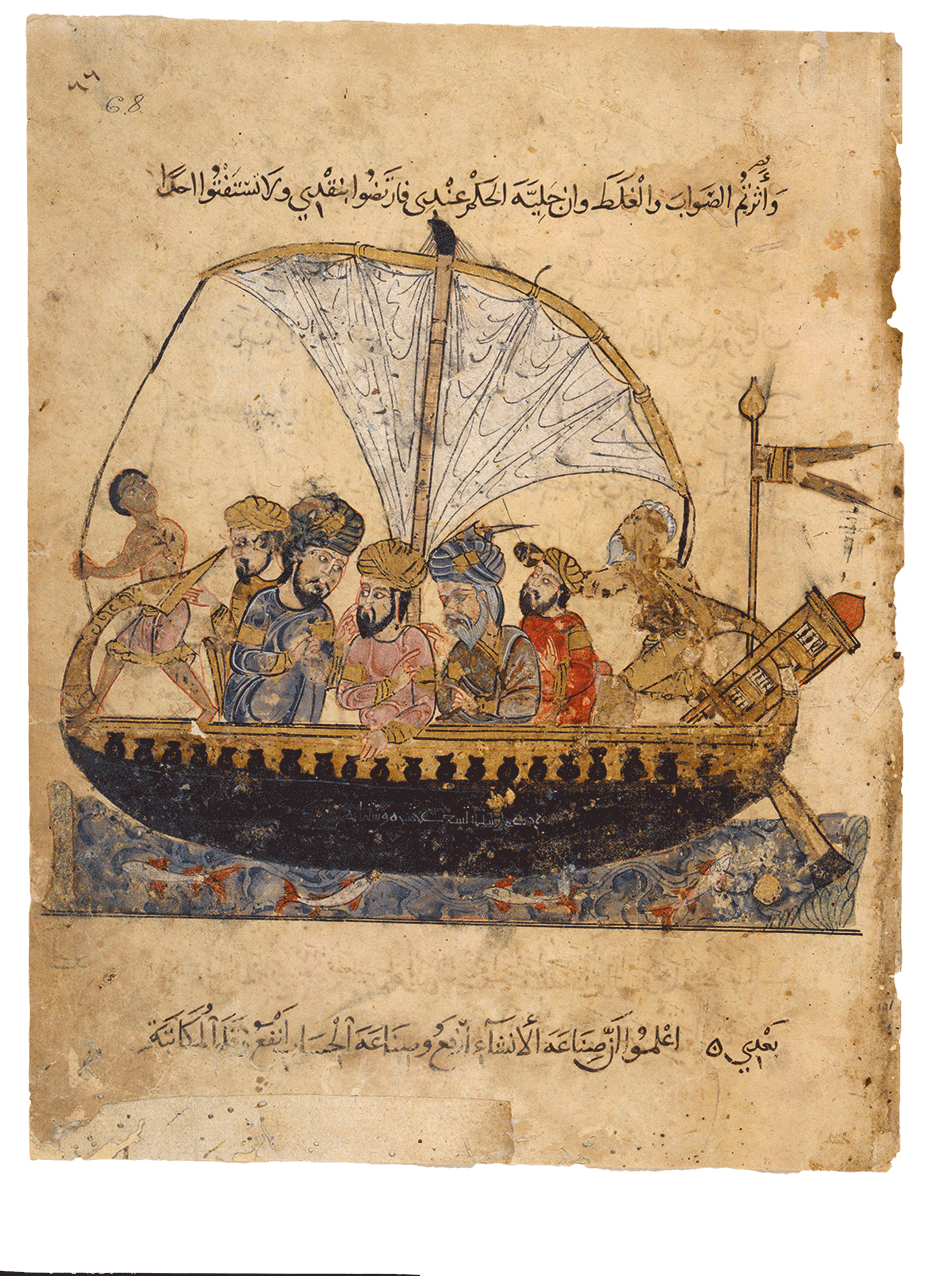 68
وَأَثَرْتُم الصَّوابَ والْغَلَطَ وان جَلِيَّةَ الحُكْمِ عِنْدِى فارتَضُوا بنَقْدِي ولا تستَفْتُوا احدًا
بَعْدِي ٥ اعْلمُوا اَنَّ صِنَاعَةَ الأنشَآءِ ارْفَعُ وصِنَاعَةَ الْحِسَابِ اَنْفَعُ وقَلَمَ المُكَاتَبَةِ